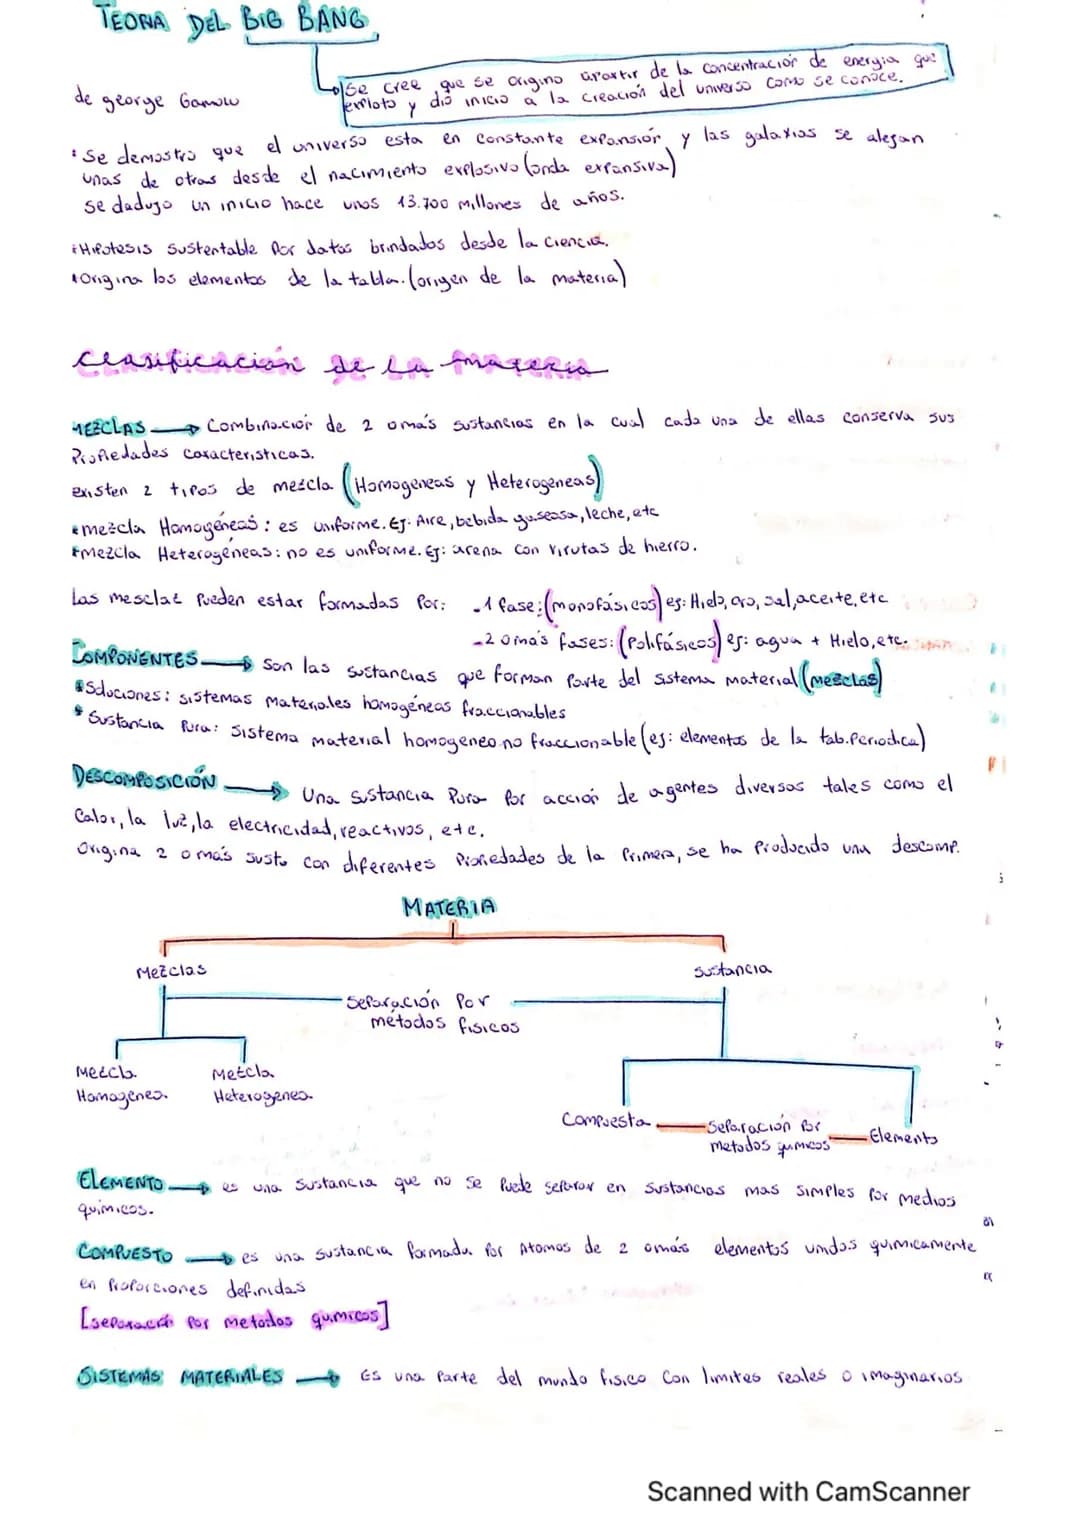 TEORIA DEL BIG BANG
Se cree que se origino apartir de la concentración de energia que
exploto y dió inicio a la creación del universo como se conoce.
de george Gamow
* Se demostro que el universo esta en constante expansión y las galaxias se alejan
unas de otras desde el nacimiento explosivo (onda expansiva)
se dadujo un inicio hace unos 13.700 millones de años.
* Hipotesis sustentable por datos brindados desde la ciencia.
* Origina los elementos de la tabla. (origen de la materia)
Clasificación de la materia
MEZCLAS → Combinación de 2 o más sustancias en la cual cada una de ellas conserva sus
Propiedades caracteristicas.
existen 2 tipos de mezcla (Homogeneas y Heterogeneas)
* mezcla Homogéneas: es uniforme. Ej: Aire, bebida gaseosa, leche, etc
* Mezcla Heterogéneas: no es uniforme. Ej: arena con virutas de hierro.
Las mesclas pueden estar formadas por: - 1 fase: (monofásicos) ej: Hielo, oro, sal, aceite, etc
- 2 o más fases: (Polifásicos) ej: agua + Hielo, etc.
COMPONENTES → Son las sustancias que forman parte del sistema material (mesclas)
* Soluciones: sistemas materiales homogéneos fraccionables
* Sustancia Pura: Sistema material homogeneo no fraccionable (ej: elementos de la tab. Periodica)
DESCOMPOSICIÓN → Una sustancia Pura por acción de agentes diversos tales como el
Calor, la luz, la electricidad, reactivos, etc.
Origina 2 o más sust. con diferentes Propiedades de la Primera, se ha Producido una descomp.
MATERIA
Mezclas
Sustancia
Separación Por
métodos fisicos
Mezcla
Homogenea
Mezcla
Heterogenea
Compuesto
Separación por
metodos quimicos
Elemento
ELEMENTO → es una sustancia que no se Puede separar en sustancias mas simples por medios
químicos.
COMPUESTO → es una sustancia formada por Atomos de 2 o más elementos unidos quimicamente
en Proporciones definidas
[separación por metodos quimicos]
SISTEMAS MATERIALES → Es una parte del mundo fisico con limites reales o imaginarios
Scanned with CamScanner